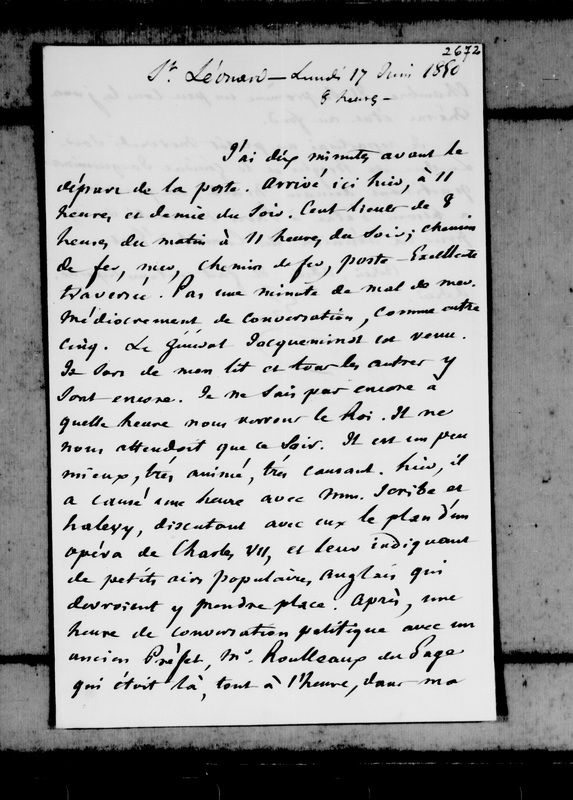 2672
St Léonard - Lundi 17 Juin 1850
8 heures -
J'ai dix minutes avant le
départ de la poste. Arrivé ici hier, à 11
heures et demie du soir. Cent lieues de 8
heures du matin à 11 heures du soir ; chemin
de fer, mer, chemin de fer, poste. Excellente
traversée. Pas une minute de mal de mer.
Médiocrement de conversation, comme entre
cinq. Le général Jacqueminot est venu.
Je sors de mon lit et tous les autres y
sont encore. Je ne sais pas encore à
quelle heure nous verrons le Roi. Il ne
nous attendoit que ce soir. Il est un peu
mieux, très animé, très causant. hier, il
a causé une heure avec Mm. Scribe et
halevy, discutant avec eux le plan d'un
opéra de Charles VII, et leur indiquant
de petits airs populaires anglais qui
devroient y prendre place. Après, une
heure de conversation politique avec un
ancien Préfet, Mr. Roulleaux du Gage
qui étoit là, tout à l'heure, dans ma